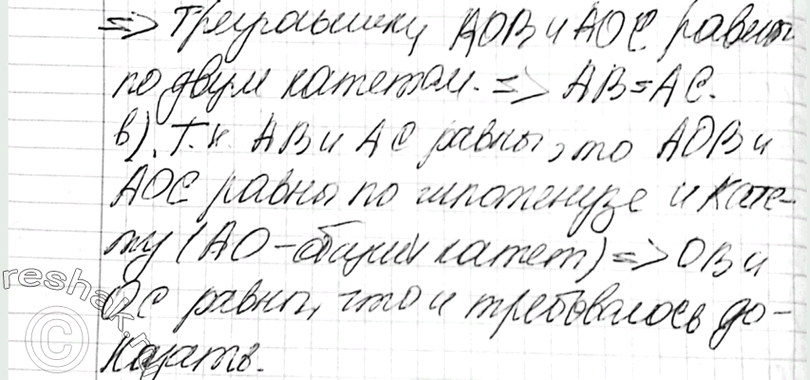 => Треугольники AOB и AOC равны
по двум катетам. => AB=AC.
в). Т.к. AB и AC равны, то AOB и
AOC равны по гипотенузе и кате-
ту (AO-общий катет) => OB и
OC равны, что и требовалось до-
казать.
reshak
©